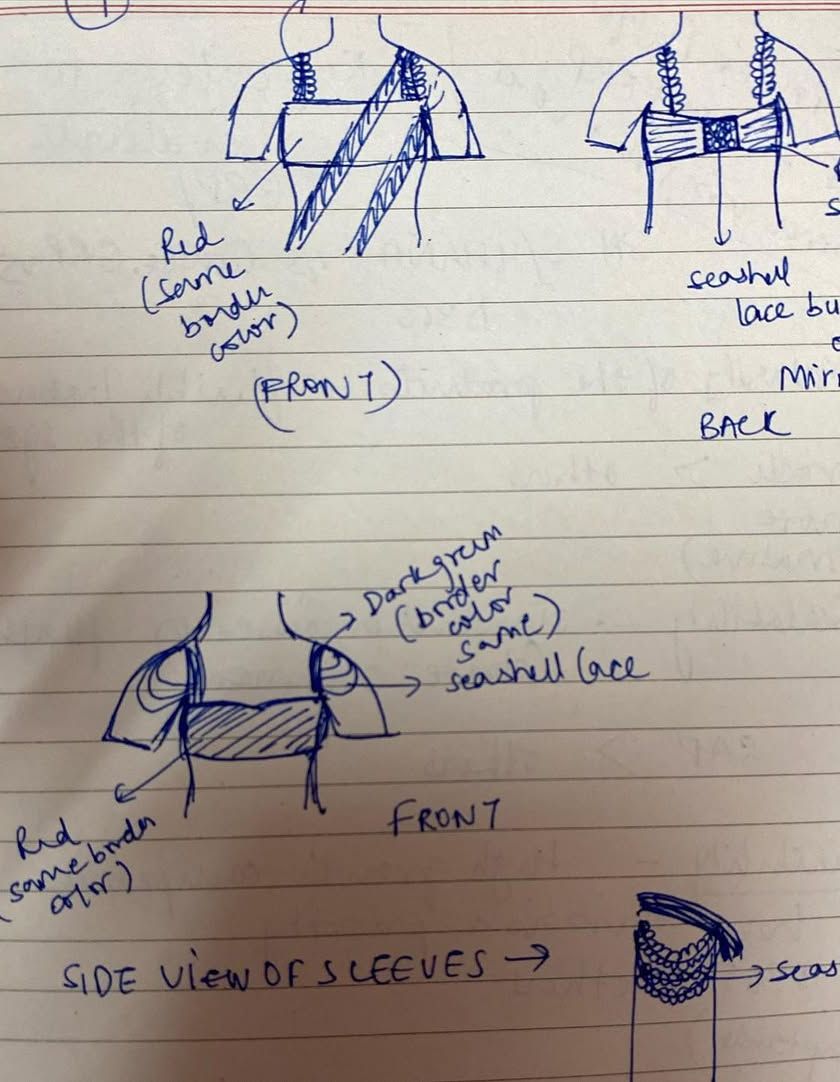 1
Red
(same
border
color)
(FRONT)
seashell
lace bu
Mir
BACK
Darkgreen
(border
color
same)
seashell lace
Red
(same border
color)
FRONT
SIDE VIEW OF SLEEVES →
seas